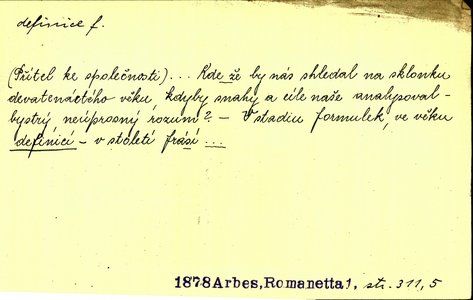 definice f.
(Přítel ke společnosti)... Kde že by nás shledal na sklonku
devatenáctého věku, kdyby snahy a cíle naše analysoval -
bystrý, neúprosný rozum? - V stadiu formulek, ve věku
definicí - v století frásí ...
1878 Arbes, Romanetta 1, str. 311, 5